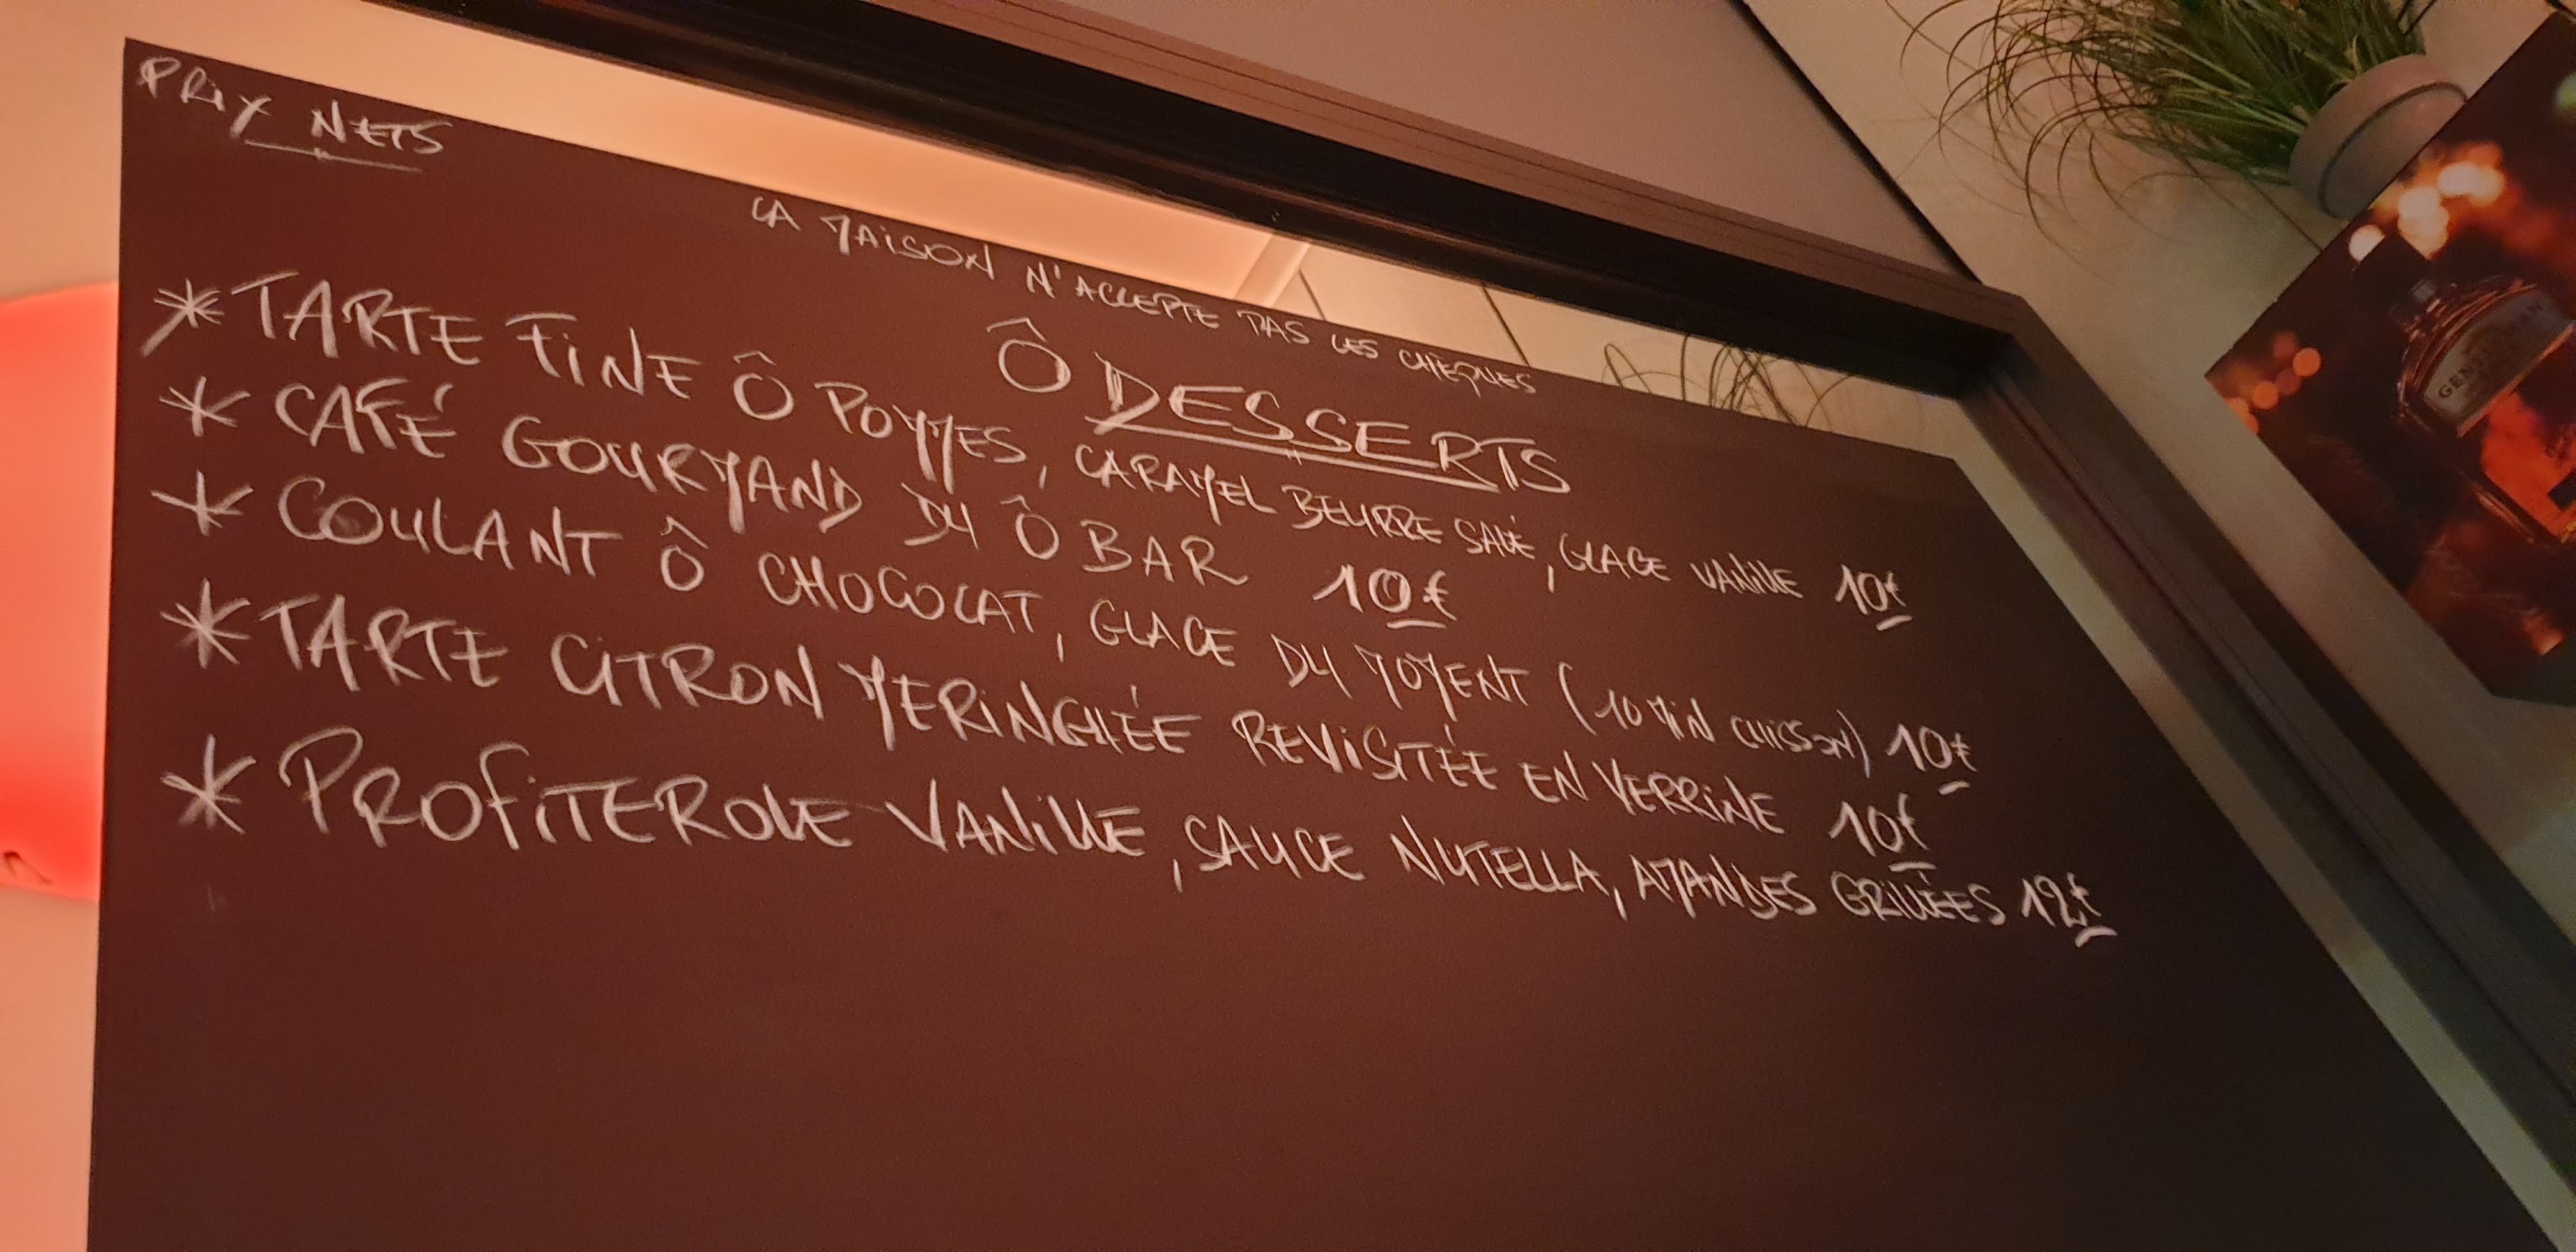 PRIX NETS
LA MAISON N'ACCEPTE PAS LES CHÈQUES
Ô DESSERTS
* TARTE FINE Ô POMMES, CARAMEL BEURRE SALÉ, GLACE VANILLE 10€
* CAFÉ GOURMAND DU Ô BAR 10€
* COULANT Ô CHOCOLAT, GLACE DU MOMENT (10 MIN CUISSON) 10€
* TARTE CITRON MERINGUÉE REVISITÉE EN VERRINE 10€
* PROFITEROLE VANILLE, SAUCE NUTELLA, AMANDES GRILLÉES 12€